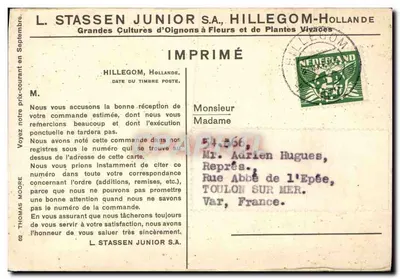 L. STASSEN JUNIOR S.A., HILLEGOM-HOLLANDE
Grandes Cultures d'Oignons à Fleurs et de Plantes Vivaces
IMPRIMÉ
HILLEGOM, HOLLANDE,
DATE DU TIMBRE POSTE.
HILLEGOM
NEDERLAND
M.
Nous vous accusons la bonne réception de
votre commande estimée, dont nous vous
remercions beaucoup et dont l'exécution
ponctuelle ne tardera pas.
Nous avons noté cette commande dans nos
registres sous le numéro qui se trouve au
dessus de l'adresse de cette carte.
Nous vous prions instamment de citer ce
numéro dans toute votre correspondance
concernant l'ordre (additions, remises, etc.),
parce que nous ne pouvons pas promettre
une bonne attention quand nous ne savons
pas le numéro de la commande.
En vous assurant que nous tâcherons toujours
de vous servir à votre satisfaction, nous avons
l'honneur de vous saluer très sincèrement.
L. STASSEN JUNIOR S.A.
Monsieur
Madame
54.566,
Mr. Adrien Hugues,
Représ.,
Rue Abbé de l'Epée,
TOULON SUR MER.
Var, France.
69 THOMAS MOORE
Voyez notre prix-courant en Septembre.